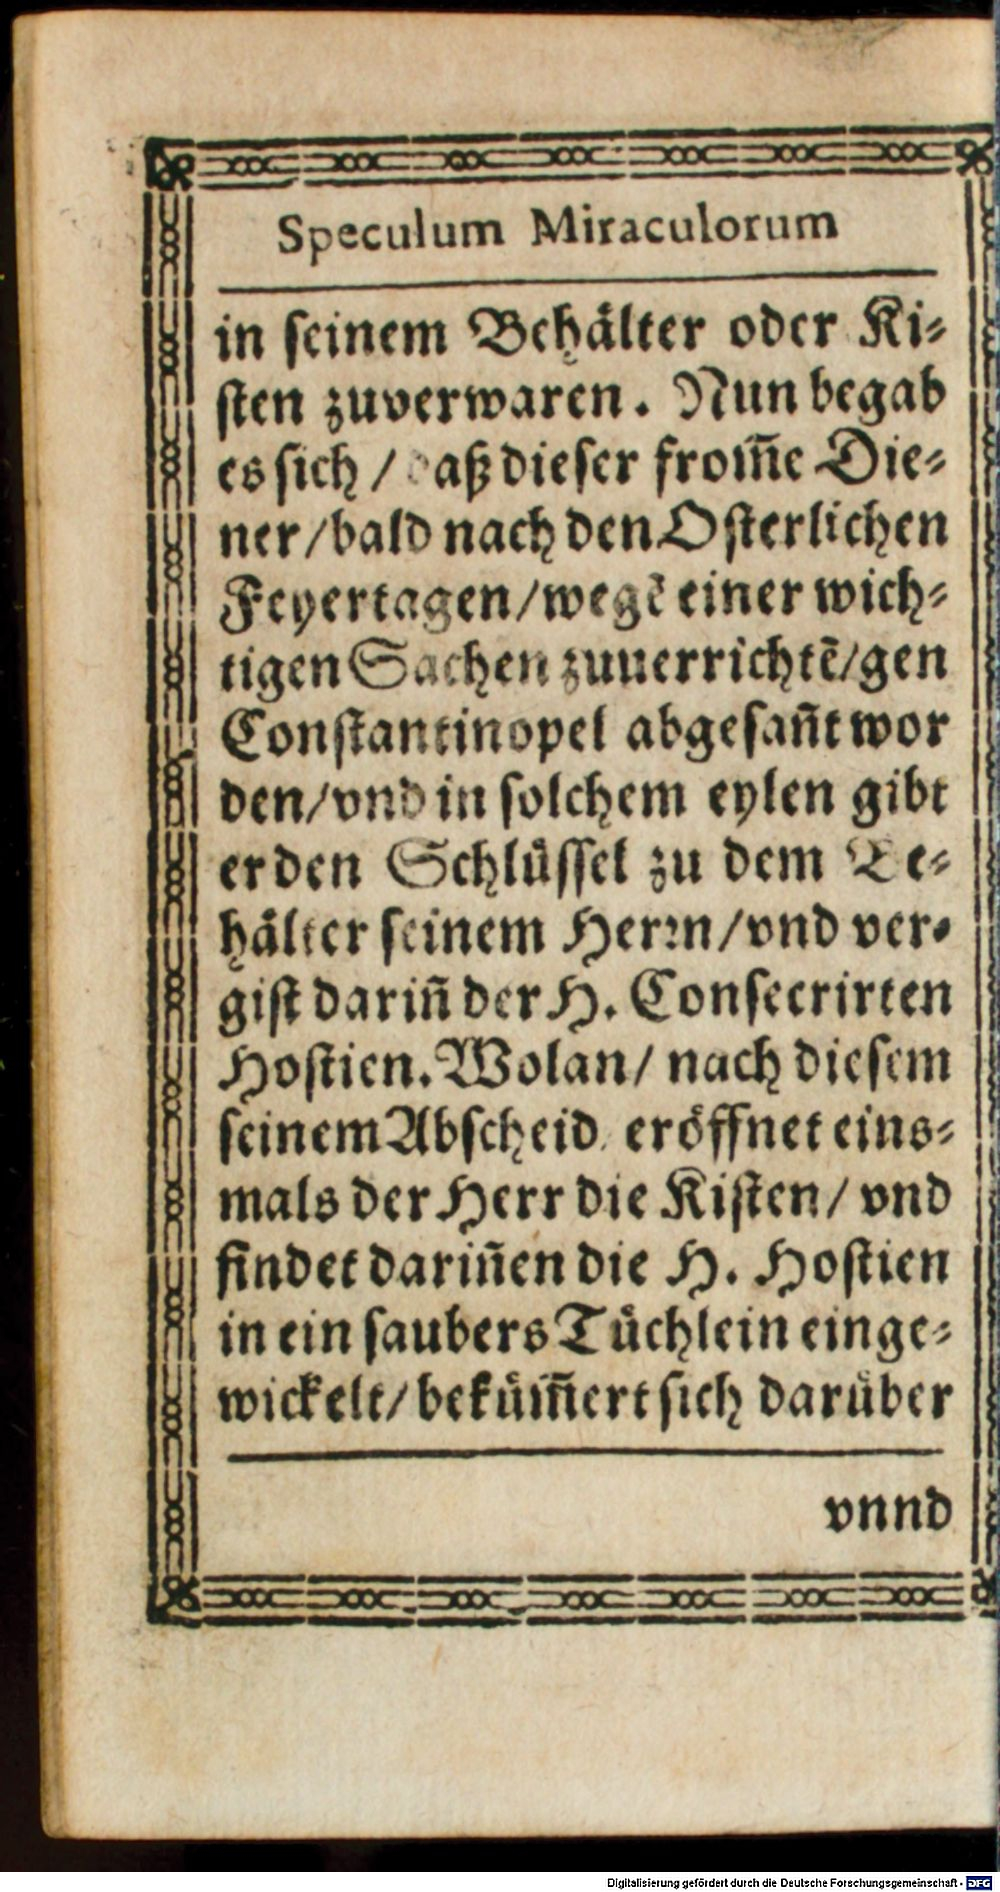 Speculum Miraculorum
in seinem Behålter oder Ki-
sten zuverwaren. Nun begab
es sich / daß dieser from̃e Die-
ner / bald nach den Osterlichen
Feyertagen / wegẽ einer wich-
tigen Sachen zuuerrichtẽ / gen
Constantinopel abgesañt wor
den / vnd in solchem eylen gibt
er den Schlůssel zu dem Be-
hålter seinem Herꝛn / vnd ver-
gist dariñ der H. Consecrirten
Hostien. Wolan / nach diesem
seinem Abscheid, eröffnet eins-
mals der Herr die Kisten / vnd
findet dariñen die H. Hostien
in ein saubers Tůchlein einge-
wickelt / bekům̃ert sich darůber
vnnd
Digitalisierung gefördert durch die Deutsche Forschungsgemeinschaft - DFG